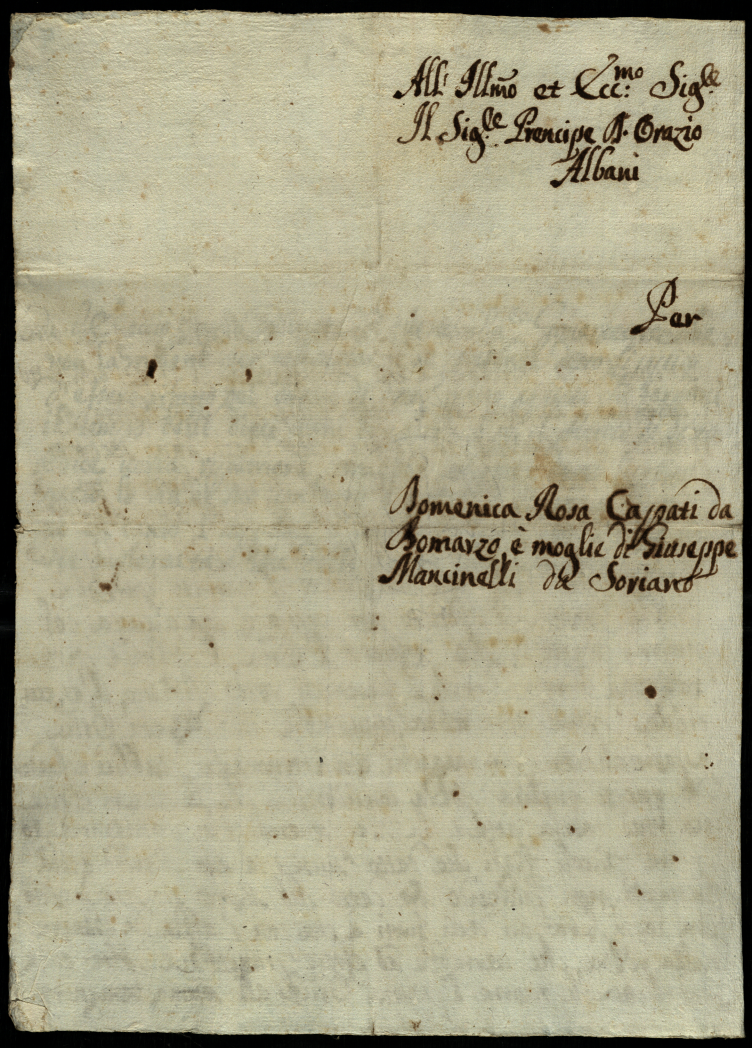 All' Illmo et Ecc:mo Sig.re
Il Sig.re Prencipe D. Orazio
Albani
Per
Domenica Rosa Caspati da
Bomarzo, è moglie di Giuseppe
Mancinelli da Soriano